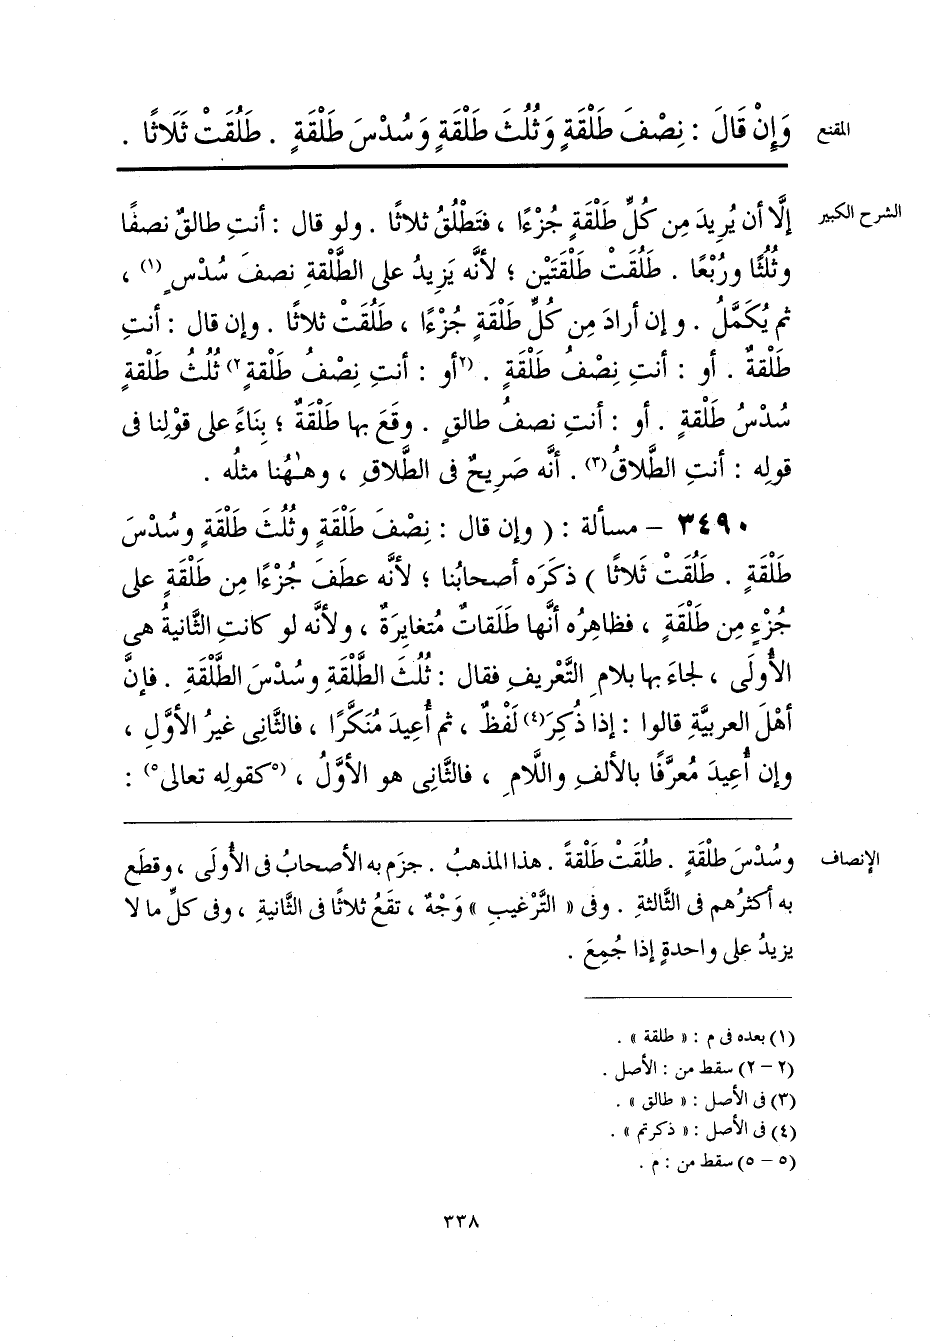 المقنع
وَإِنْ قَالَ : نِصْفَ طَلْقَةٍ وَثُلُثَ طَلْقَةٍ وَسُدْسَ طَلْقَةٍ . طَلُقَتْ ثَلَاثًا .
الشرح الكبير
إلَّا أن يُرِيدَ مِن كُلِّ طَلْقَةٍ جُزْءًا ، فتَطْلُقُ ثلاثًا . ولو قال : أنتِ طالقٌ نصفًا
وثُلُثًا ورُبْعًا . طَلُقَتْ طَلْقَتَيْن ؛ لأنَّه يَزِيدُ على الطَّلْقةِ نصفَ سُدْسٍ(١) ،
ثم يُكَمَّلُ . وإن أرادَ مِن كُلِّ طَلْقةٍ جُزْءًا ، طَلُقَتْ ثلاثًا . وإن قال : أنتِ
طَلْقةٌ . أو : أنتِ نِصْفُ طَلْقَةٍ . (٢أو : أنتِ نِصْفُ طَلْقةٍ٢) ثُلُثُ طَلْقةٍ
سُدْسُ طَلْقةٍ . أو : أنتِ نصفُ طالقٍ . وقَعَ بها طَلْقَةٌ ؛ بِنَاءً على قوْلِنا فى
قولِه : أنتِ الطَّلاقُ(٣) . أنَّه صَرِيحٌ فى الطَّلاقِ ، وهٰهُنا مثلُه .
٣٤٩٠ – مسألة : ( وإن قال : نِصْفَ طَلْقَةٍ وثُلُثَ طَلْقَةٍ وسُدْسَ
طَلْقَةٍ . طَلُقَتْ ثَلاثًا ) ذكَرَه أصحابُنا ؛ لأنَّه عطَفَ جُزْءًا مِن طَلْقَةٍ على
جُزْءٍ مِن طَلْقَةٍ ، فظاهِرُه أنَّها طَلَقاتٌ مُتغايِرَةٌ ، ولأنَّه لو كانتِ الثَّانيةُ هى
الأُولَى ، لجاءَ بها بلامِ التَّعْريفِ فقال : ثُلُثَ الطَّلْقَةِ وسُدْسَ الطَّلْقَةِ . فإنَّ
أهْلَ العربيَّةِ قالوا : إذا ذُكِرَ(٤) لَفْظٌ ، ثم أُعِيدَ مُنَكَّرًا ، فالثَّانى غيرُ الأوَّلِ ،
وإن أُعِيدَ مُعرَّفًا بالألفِ واللَّامِ ، فالثَّانى هو الأوَّلُ ، (٥كقولِه تعالى٥) :
الإنصاف
وسُدْسَ طلْقَةٍ . طلُقَتْ طَلْقةً . هذا المذهبُ . جزَم به الأصحابُ فى الأُولَى ، وقطَع
به أكثرُهم فى الثَّالثةِ . وفى « التَّرْغيبِ » وَجْهٌ ، تقَعُ ثلاثًا فى الثَّانيةِ ، وفى كلِّ ما لا
يزيدُ على واحدةٍ إذا جُمِعَ .
(١) بعده فى م : « طلقة » .
(٢ – ٢) سقط من : الأصل .
(٣) فى الأصل : « طالق » .
(٤) فى الأصل : « ذكرتم » .
(٥ – ٥) سقط من : م .
٣٣٨